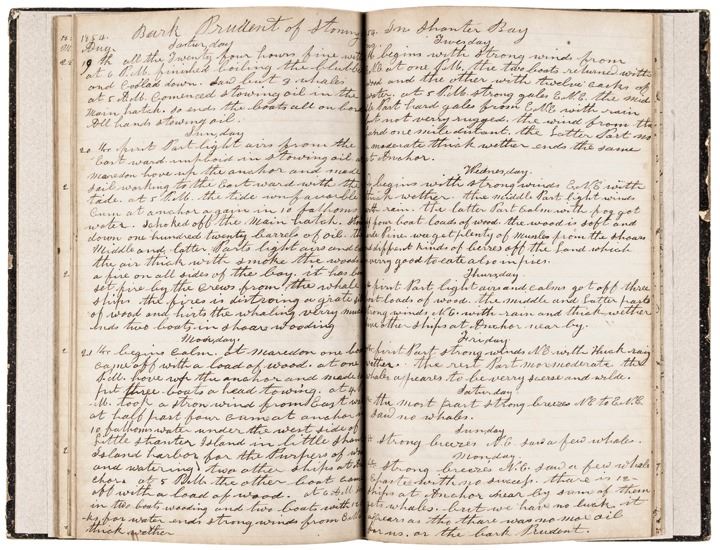 1854. Bark Prudent of Stonin
Aug. Saturday
19 th all the Twenty four hours fine
at 6 P.M. finished boiling the blubber
and Coold down. saw but 3 whales
at 5 A.M. Comenced stowing oil in the
Main hatch. so ends the boats all on board
All hands stowing oil.
Sunday
20 th first Part light airs from the
Eastward imploid in stowing oil
Maredon hove up the anchor and made
sail working to the Eastward with the
tide. at 5 P.M. the tide unfavorable
Cum at anchor again in 10 fathoms
water. choked off the Main hatch.
down one hundred twenty barrels of oil.
Middle and Latter Parts light airs and
the air thick with smoke the woods
a fire on all sides of the bay. it has b
set fire by the crews from the whale
ships the fires is distroing a grate
of wood and hurts the whaling verry mu
ends two boats in shoar wooding
Monday
21 th begins Calm. at Maredon one bo
Came off with a load of wood. at one
P.M. hove up the anchor and made
put three boats a head towing. at 4
M. took a strong wind from East
at half past four Cum at anchor
10 fathoms water under the west side of
Little Shanter Island in little Shan
Island harbor for the Purpers of wo
and watering. two other ships at
chor. at 5 P.M. the other boat came
off with a load of wood. at 6 A.M.
in two boats wooding and two boats with
for water ends strong winds from
thick wether
54. In Shanter Bay
Tuesday
begins with strong winds from
at one P.M. the two boats returned with
wood and the other with twelve casks of
water. at 5 P.M. strong gales E.N.E. the mid
Part hard gales from E.N.E with rain
but not verry rugged. the wind from the
land one mile distant. the Latter Part
moderate thick wether ends the same
at Anchor.
Wednesday.
begins with strong winds E.N.E with
thick wether. the Middle Part light winds
with rain. the latter Part Calm with fog got
off four boat loads of wood. the wood is soft and
Pine we get plenty of Musles from the shoars
different kinds of berres off the Land which
verry good to eate also in pies.
Thursday
first Part light airs and calms got off three
boat loads of wood. the middle and Latter parts
strong winds N.E. with rain and thick wether
other ships at Anchor near by.
Friday
first Part strong winds N.E with thick rain
wether. the rest Part mor moderate the
whales apeares to be verry scerse and wilde.
Saturday
the most part strong breezes N.E to E.N.E.
saw no whales.
Sunday
strong breezes N.E. saw a few whales.
Monday.
strong breezes N.E. saw a few whale
Chaste with no success. there is 12
ships at Anchor near by sum of them
gets whales. but we have no luck it
appears as tho thare was no mor oil
for us. or the bark Prudent.